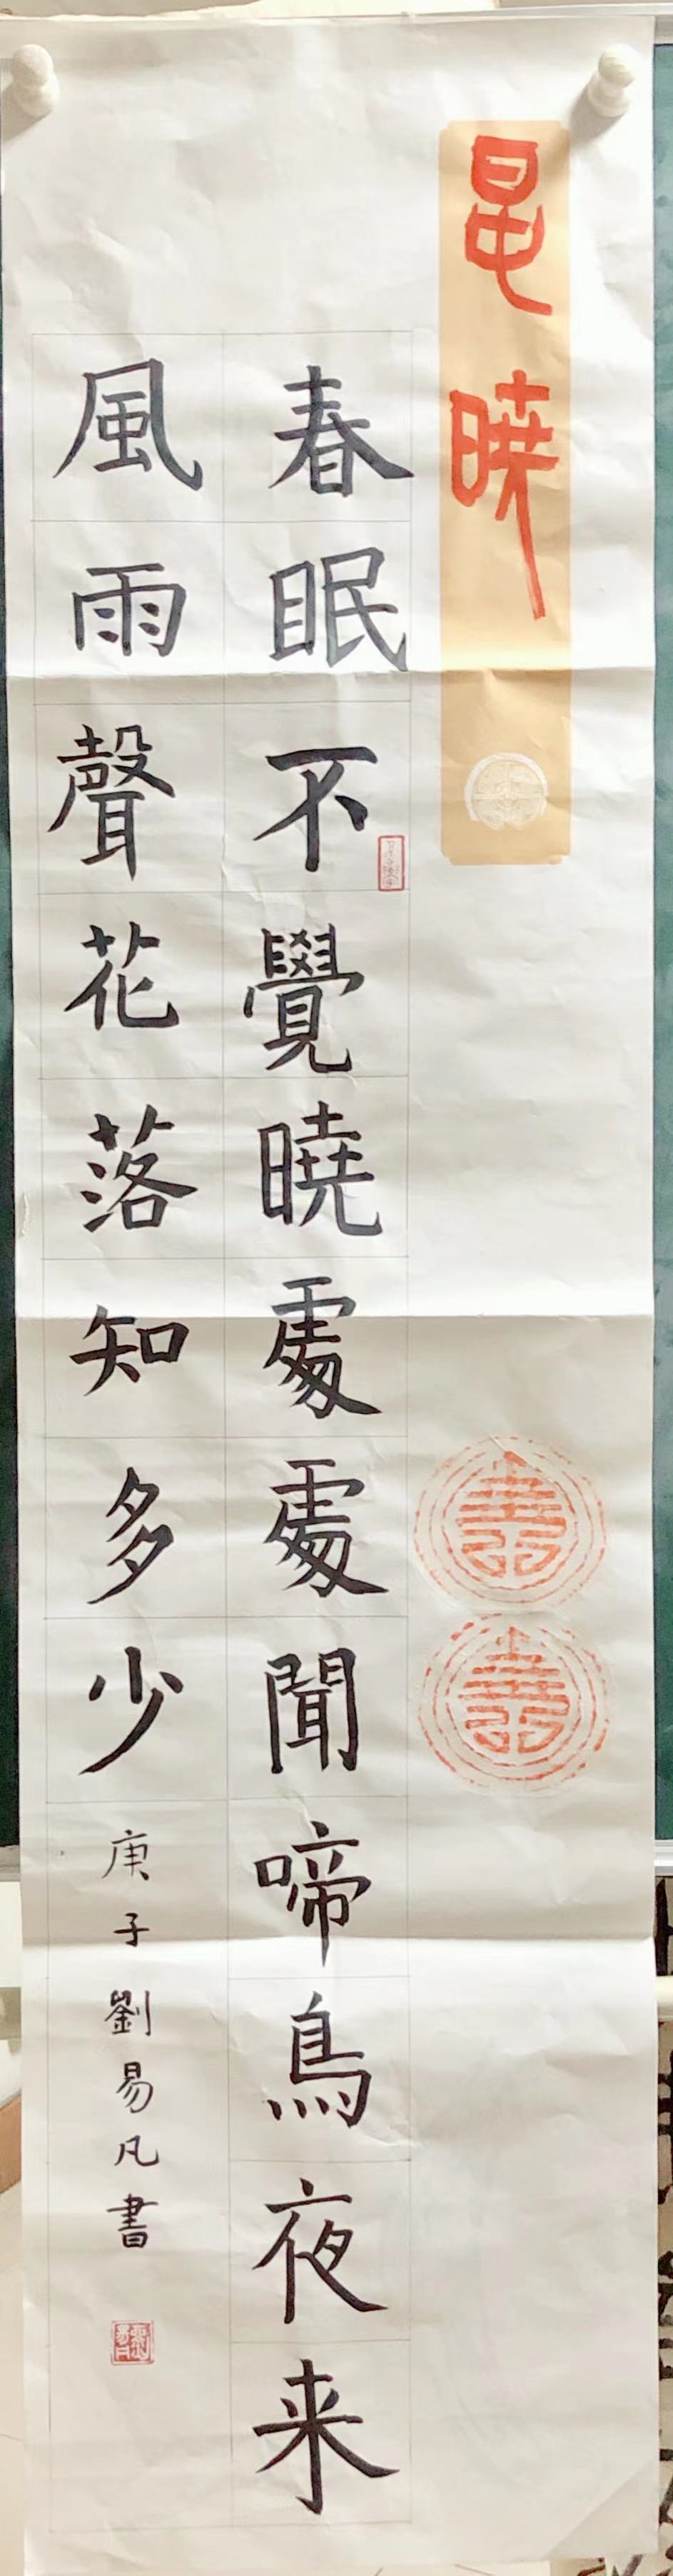 春曉
春眠不覺曉處處聞啼鳥夜来
風雨聲花落知多少
庚子劉易凡書